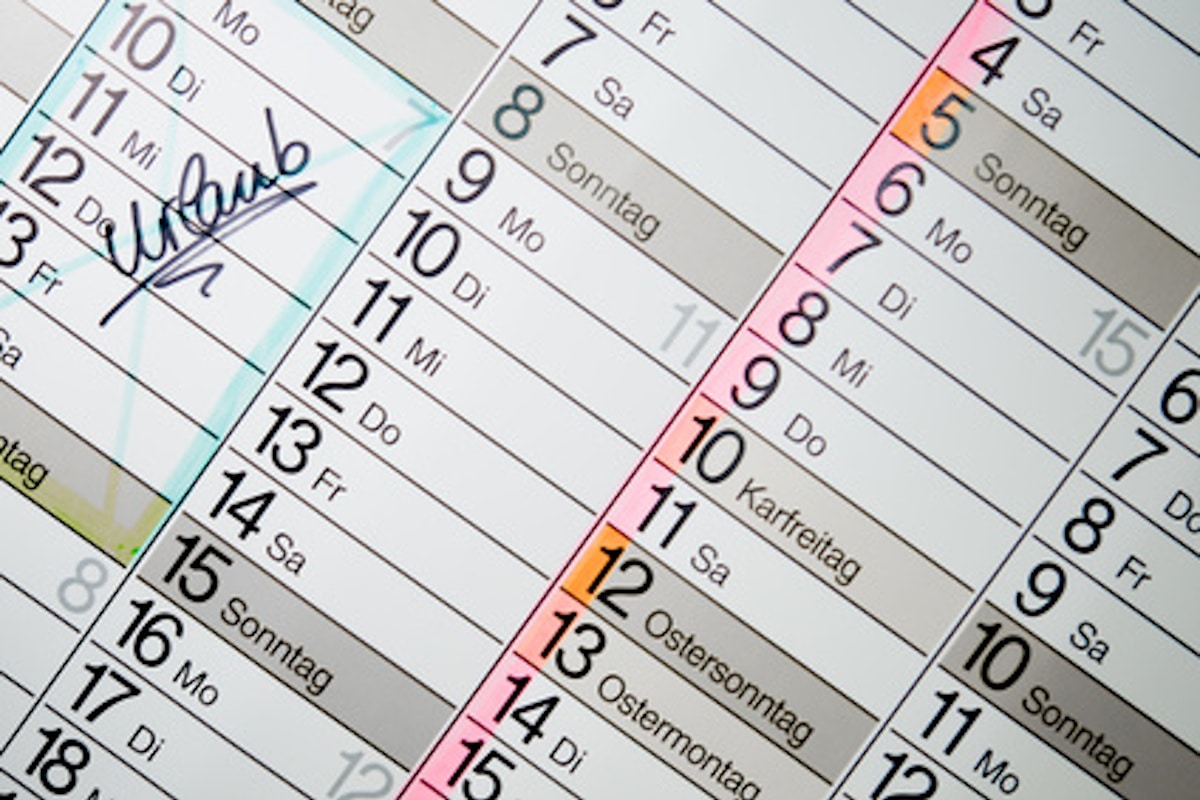 Mo
10 Di
11 Mi
12 Do
13 Fr
Sa
Urlaub
7
8
7 Sa
8 Sonntag
9 Mo
10 Di
11
11 Mi
12 Do
13 Fr
14 Sa
15 Sonntag
16 Mo
12
17 Di
18
Fr
Fr
4 Sa
5 Sonntag
6 Mo
15
7 Di
8 Mi
9 Do
10 Karfreitag
11 Sa
12 Ostersonntag
13 Ostermontag
14 Di
15
6
7 Do
8 Fr
9 Sa
10 Sonntag
11 Mo
12